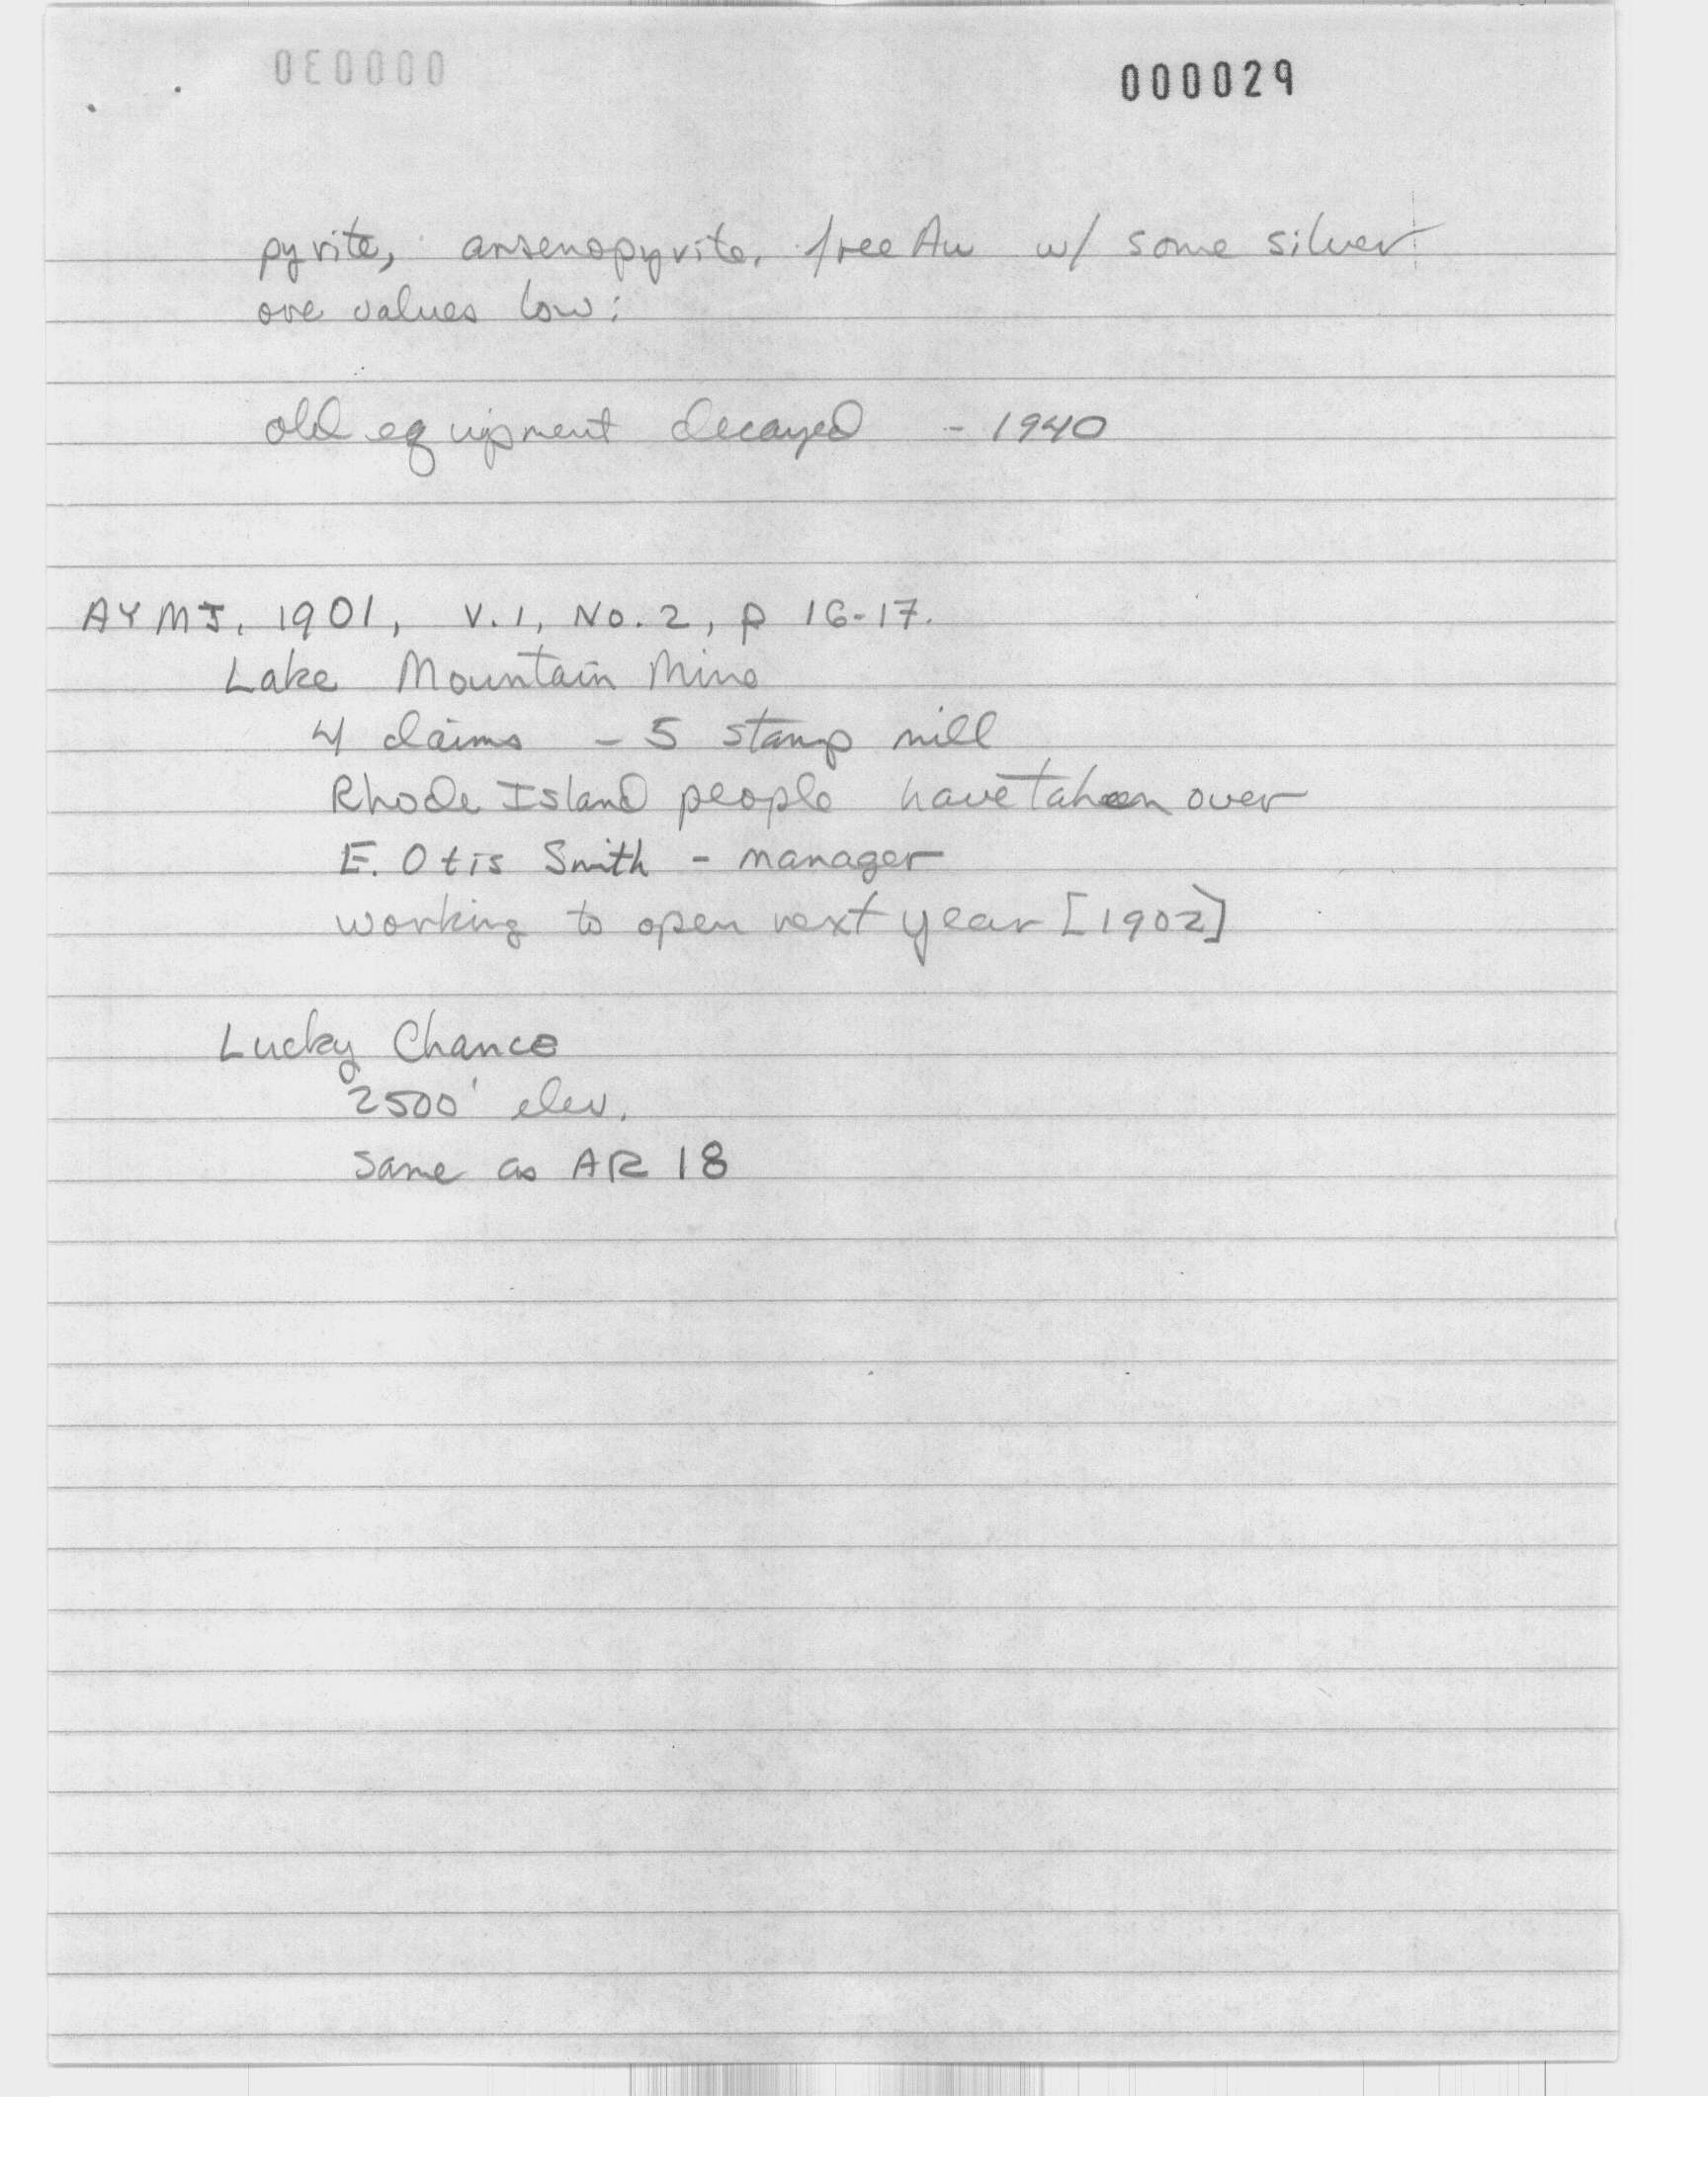 000029
pyrite, arsenopyrite, free Au w/ some silver
ore values low;
old equipment decayed - 1940
AYMJ, 1901, V.1, No. 2, p 16-17.
Lake Mountain Mine
4 claims - 5 stamp mill
Rhode Island people have taken over
E. Otis Smith - manager
working to open next year [1902]
Lucky Chance
2500' elev.
same as AR 18